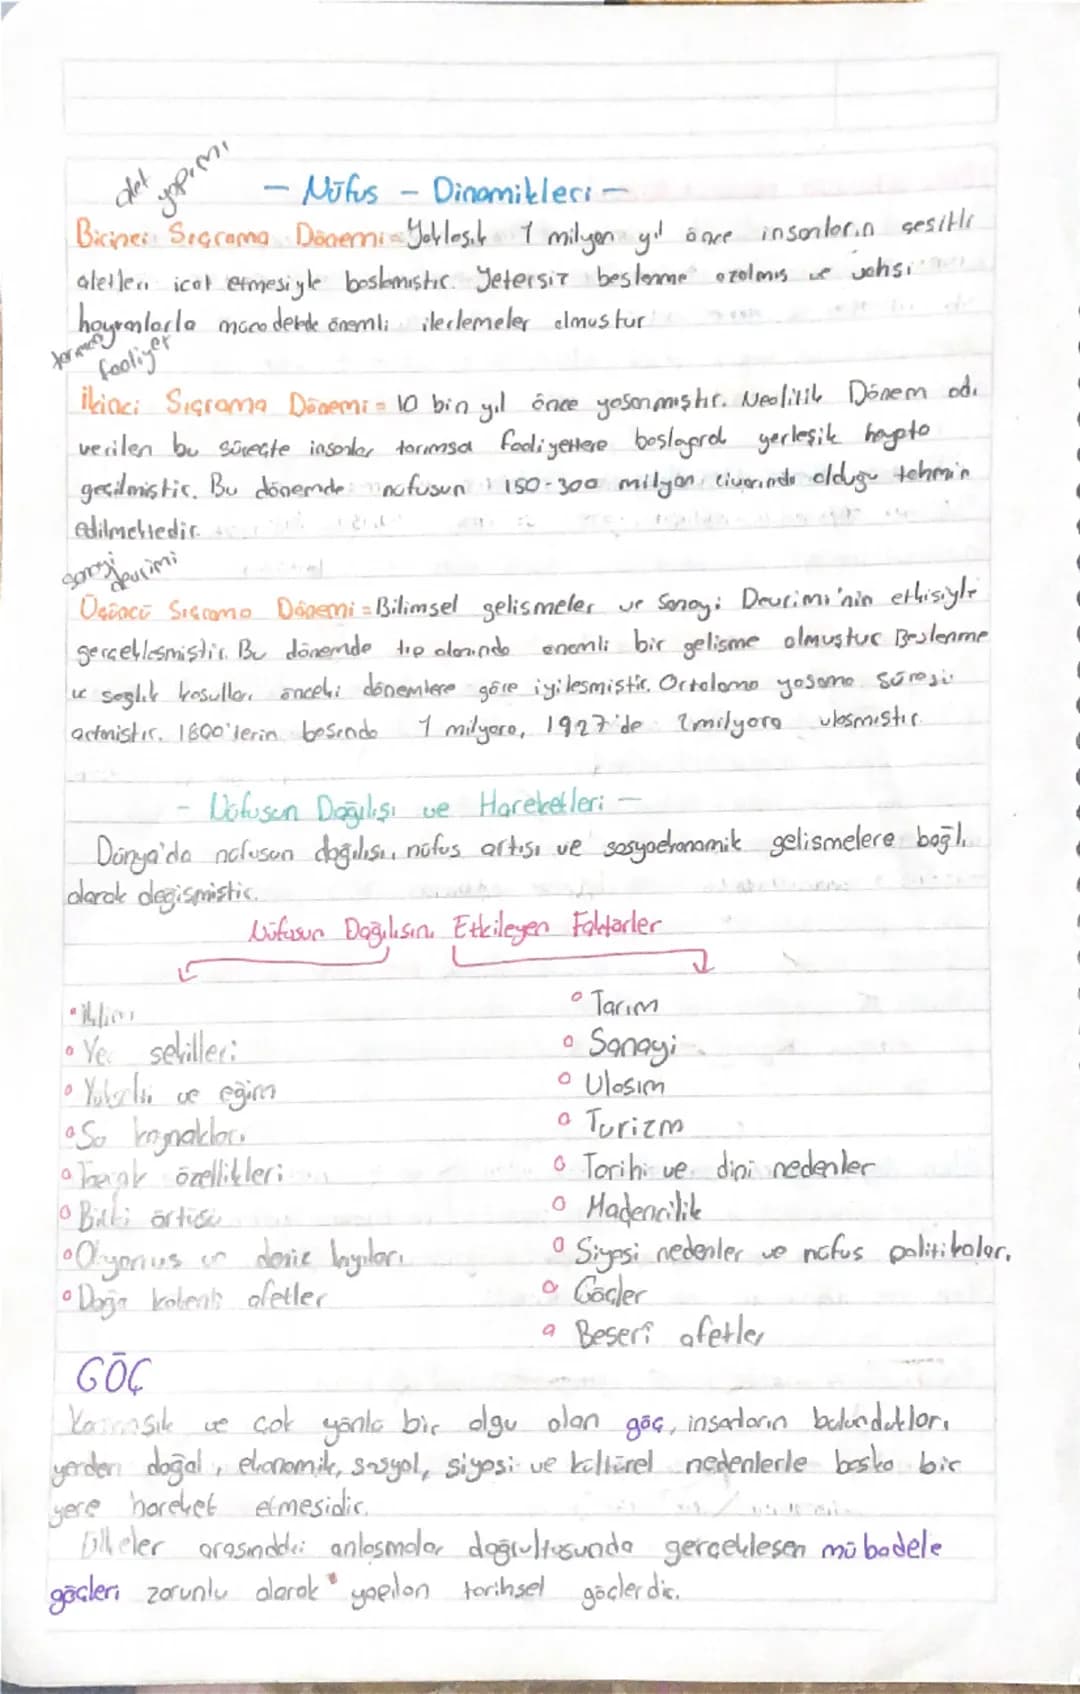 alet yapımı
- Nüfus - Dinamikleri -
Birinci Sıçrama Dönemi = Yaklaşık 1 milyon yıl önce insanların çeşitli
aletleri icat etmesiyle başlamıştır. Yetersiz beslenme azalmış ve vahşi
hayvanlarla mücadelede önemli ilerlemeler olmuştur
tarımsal faaliyet
İkinci Sıçrama Dönemi = 10 bin yıl önce yaşanmıştır. Neolitik Dönem adı
verilen bu süreçte insanlar tarımsal faaliyetlere başlayarak yerleşik hayata
geçilmiştir. Bu dönemde nüfusun 150-300 milyon civarında olduğu tahmin
edilmektedir.
sanayi devrimi
Üçüncü Sıçrama Dönemi = Bilimsel gelişmeler ve Sanayi Devrimi'nin etkisiyle
gerçekleşmiştir. Bu dönemde tıp alanında önemli bir gelişme olmuştur Beslenme
ve sağlık koşulları önceki dönemlere göre iyileşmiştir. Ortalama yaşama süresi
artmıştır. 1800'lerin başında 1 milyara, 1927'de 2 milyara ulaşmıştır.
- Nüfusun Dağılışı ve Hareketleri -
Dünya'da nüfusun dağılışı, nüfus artışı ve sosyoekonomik gelişmelere bağlı
olarak değişmiştir.
Nüfusun Dağılışını Etkileyen Faktörler
• İklim
• Yer şekilleri
• Yükselti ve eğim
• Su kaynakları
• Toprak özellikleri
• Bitki örtüsü
• Okyanus ve deniz kıyıları
• Doğa kökenli afetler
• Tarım
• Sanayi
• Ulaşım
• Turizm
• Tarihi ve dini nedenler
• Madencilik
• Siyasi nedenler ve nüfus politikaları
• Göçler
• Beşerî afetler
GÖÇ
Karmaşık ve çok yönlü bir olgu olan göç, insanların bulundukları
yerden doğal, ekonomik, sosyal, siyasi ve kültürel nedenlerle başka bir
yere hareket etmesidir.
Ülkeler arasındaki anlaşmalar doğrultusunda gerçekleşen mübadele
göçleri zorunlu olarak yapılan tarihsel göçlerdir.